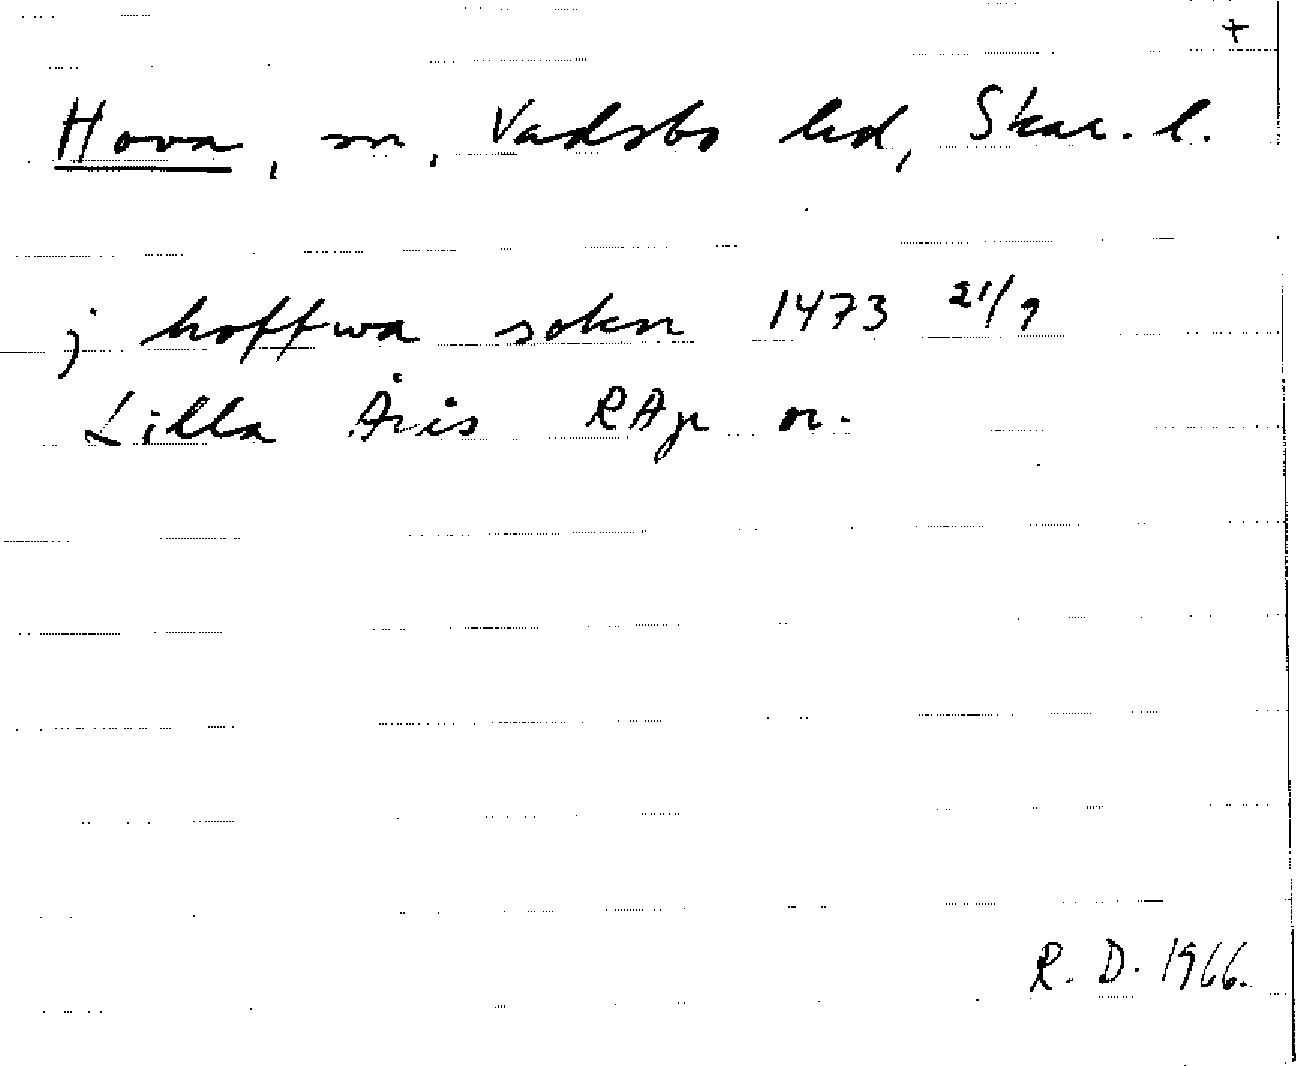 +
Hova, sn, Vadsbo hd, Skar. l.
j hoffwa sokn 1473 21/9
Lilla Åris RAp or.
R. D. 1966.